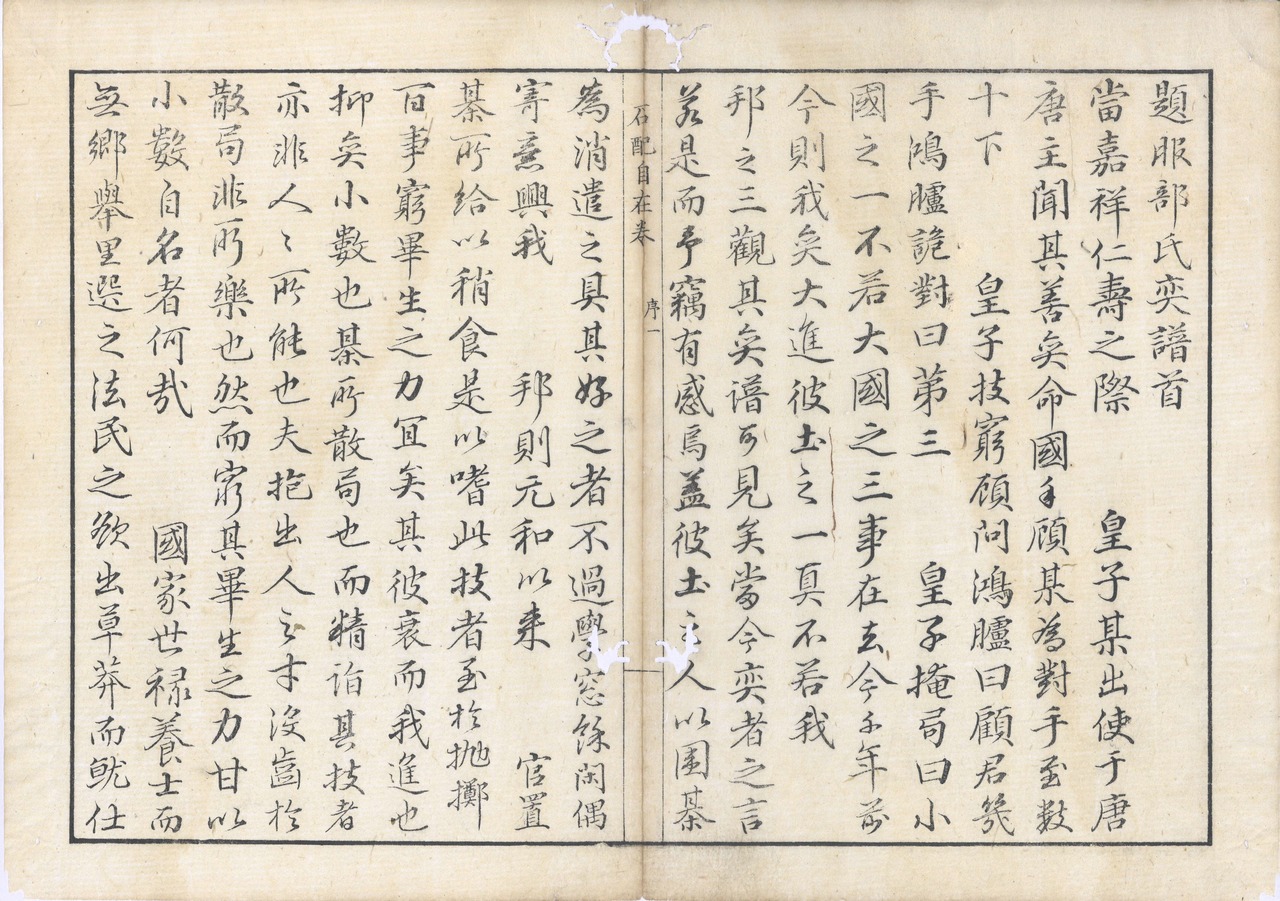 題服部氏奕譜首
當嘉祥仁壽之際　皇子某出使于唐
唐主聞其善奕命國手顧某為對手至數
十下　皇子技窮顧問鴻臚曰顧君幾
手鴻臚詭對曰第三　皇子掩局曰小
國之一不若大國之三事在去今千年前
今則我奕大進彼土之一真不若我
邦之三觀其奕譜可見矣當今奕者之言
若是而予竊有感焉蓋彼土之人以圍棊
石配自在卷
序一
為消遣之具其好之者不過學窓餘閑偶
寄意興我　邦則元和以来　官置
棊所給以稍食是以嗜此技者至於抛擲
百事窮畢生之力宜矣其彼衰而我進也
抑奕小數也棊所散局也而精詣其技者
亦非人〻所能也夫抱出人之才沒齒於
散局非所樂也然而窮其畢生之力甘以
小數自名者何哉　國家世禄養士而
無鄉舉里選之法民之欲出草莽而就仕